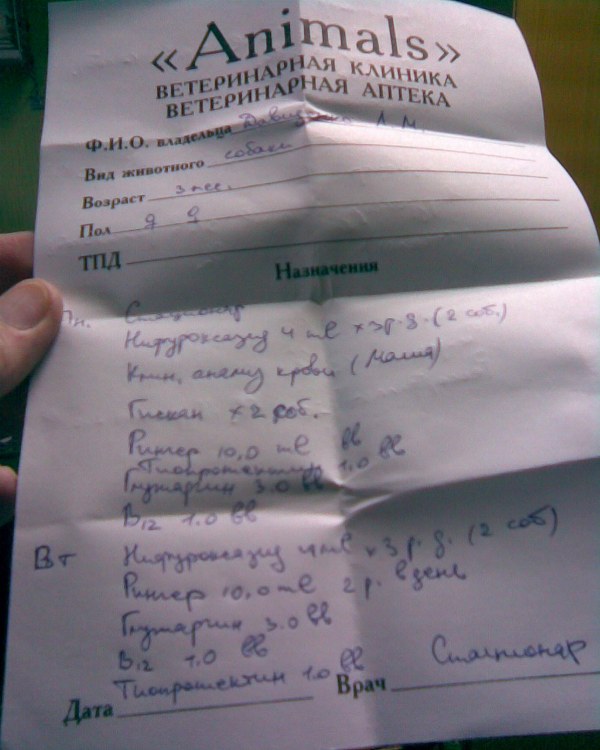 «Animals»
ВЕТЕРИНАРНАЯ КЛИНИКА
ВЕТЕРИНАРНАЯ АПТЕКА
Ф.И.О. владельца Л. М.
Вид животного собаки
Возраст 3 мес.
Пол ♀ ♀
ТПД
Назначения
Пн. Стационар
Нифуроксазид 4 ml x 3 р. д. (2 соб.)
Клин. анализ крови (Малия)
Гискан x 2 соб.
Рингер 10,0 ml вв
Тиопротектин 1.0 вв
Глутаргин 3.0 вв
B12 1.0 вв
Вт Нифуроксазид 4 ml x 3 р. д. (2 соб)
Рингер 10,0 ml 2 р. в день
Глутаргин 3.0 вв
B12 1.0 вв
Тиопротектин 1.0 вв
Стационар
Дата Врач